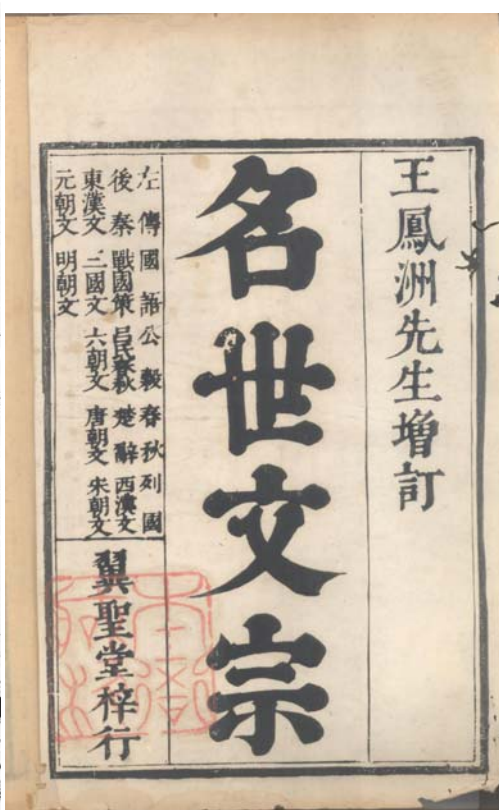 王鳳洲先生增訂
名世文宗
左傳 國語 公穀 春秋列國
後秦 戰國策 呂氏春秋 楚辭 西漢文
東漢文 三國文 六朝文 唐朝文 宋朝文
元朝文 明朝文
翼聖堂梓行